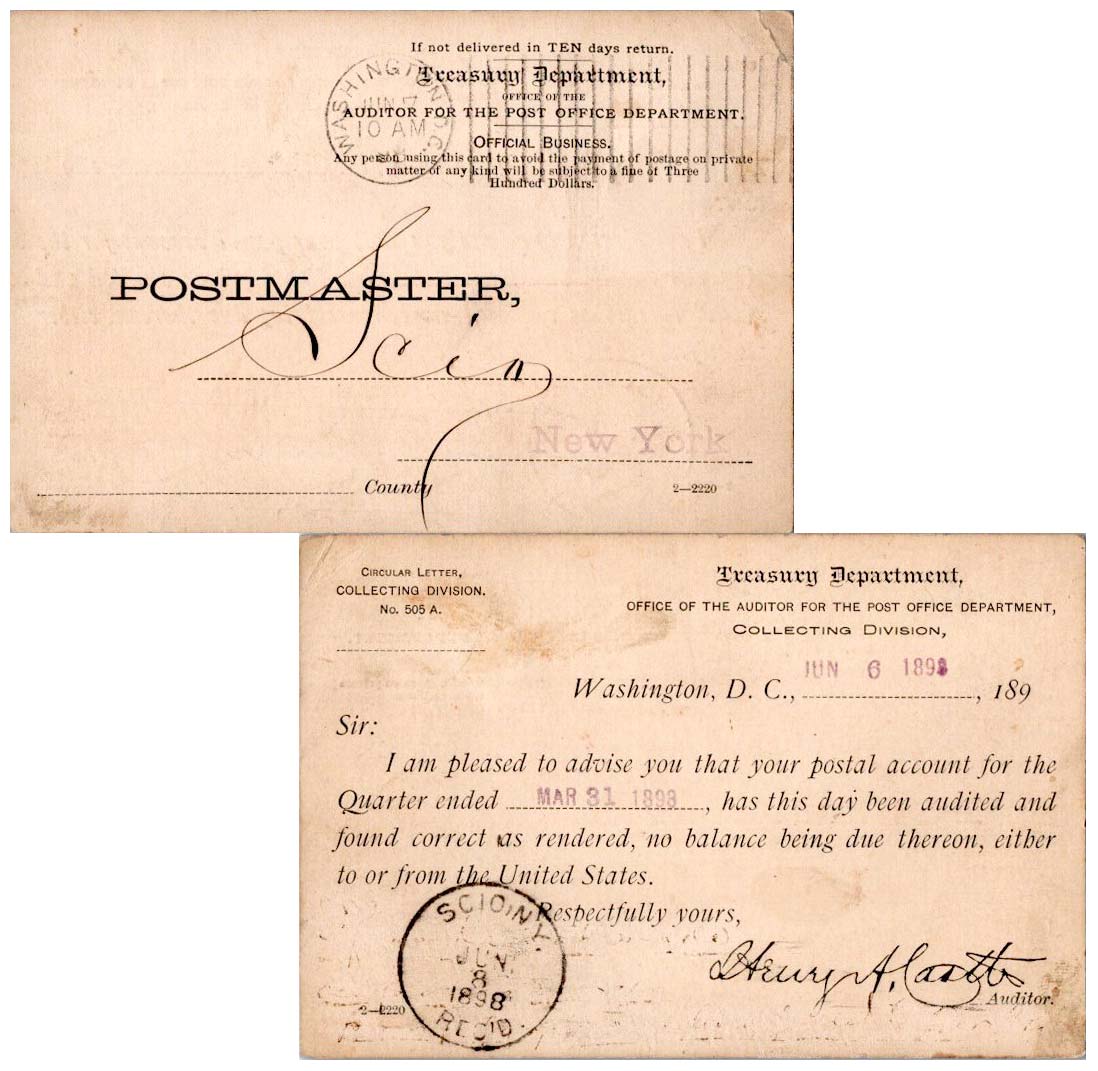 If not delivered in TEN days return.
Treasury Department,
OFFICE OF THE
AUDITOR FOR THE POST OFFICE DEPARTMENT.
OFFICIAL BUSINESS.
Any person using this card to avoid the payment of postage on private
matter of any kind will be subject to a fine of Three
Hundred Dollars.
WASHINGTON, D.C.
JUN 7
10 AM
POSTMASTER,
Scio
New York
County
2—2220
CIRCULAR LETTER,
COLLECTING DIVISION.
No. 505 A.
Treasury Department,
OFFICE OF THE AUDITOR FOR THE POST OFFICE DEPARTMENT,
COLLECTING DIVISION,
JUN 6 1898
Washington, D. C., , 189
Sir:
I am pleased to advise you that your postal account for the
Quarter ended MAR 31 1898, has this day been audited and
found correct as rendered, no balance being due thereon, either
to or from the United States.
Respectfully yours,
Henry A. Castle
Auditor.
2—2220
SCIO, N.Y.
JUN
8
1898
REC'D.